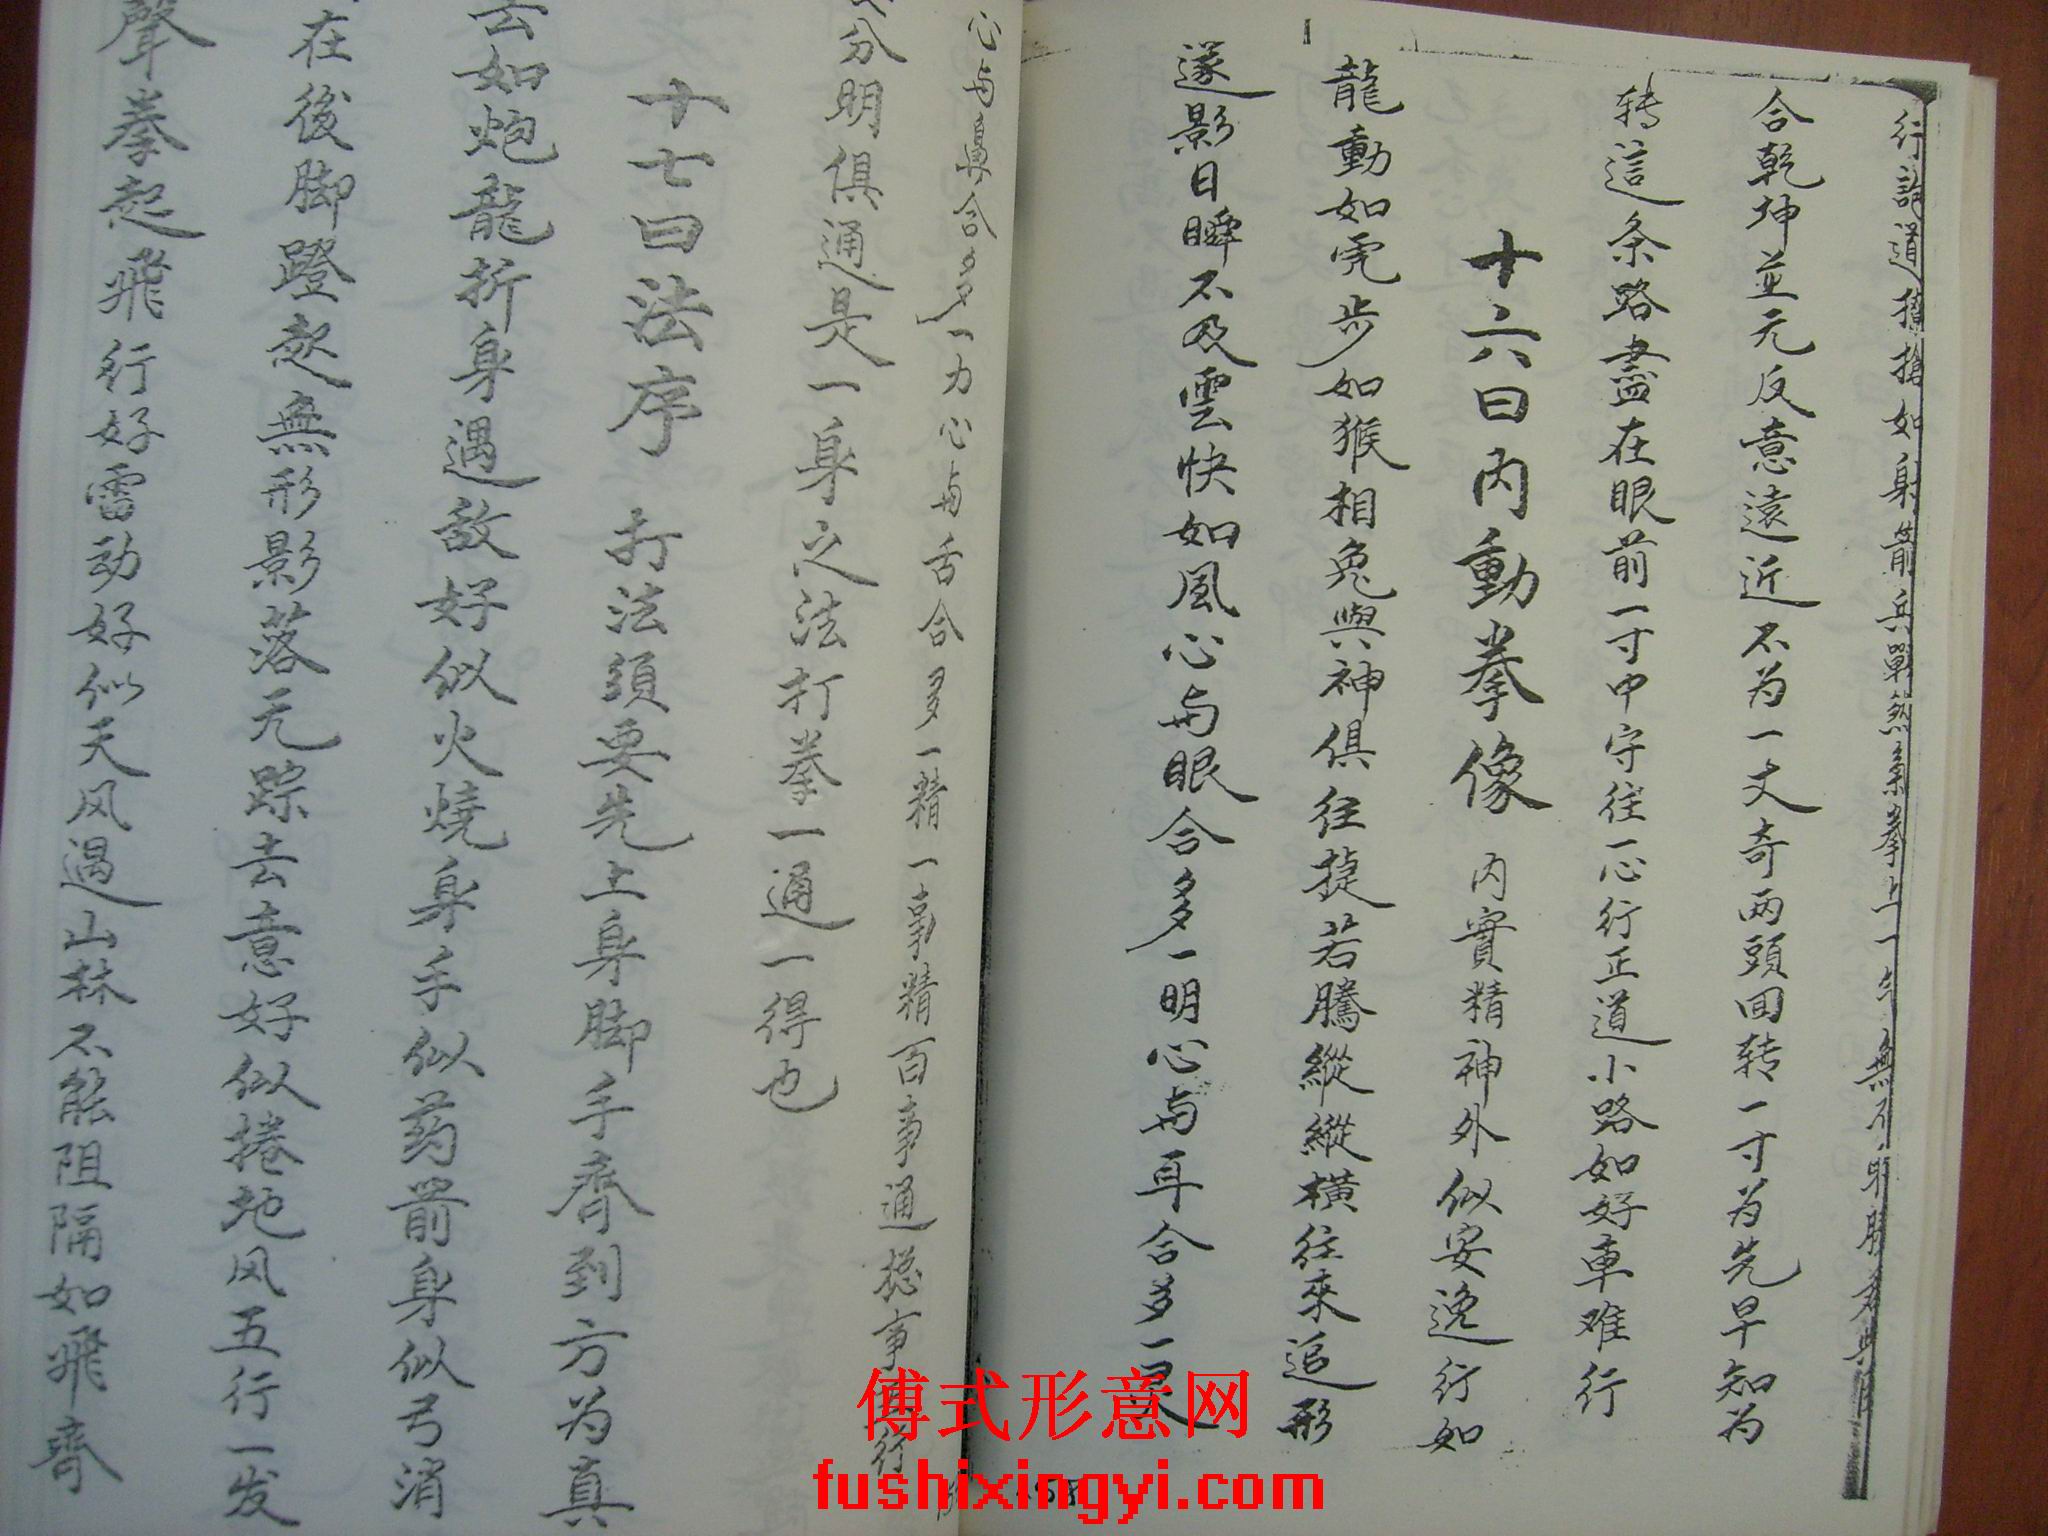 行說道 搶如射箭兵戰然 拳上一 無不
合乾坤並元反意遠近不为一丈奇两頭回转一寸为先早知为
转這条路盡在眼前一寸中守住一心行正道小路如好車难行
十六曰内動拳像 内實精神外似安逸行如
龍動如虎步如猴相兔與神俱往捷若騰縱縱横往來追形
遂影日瞬不及雲快如風心与眼合多一明心与耳合多一灵
心与鼻合多一力心与舌合多一精一事精百事通 事 行
分明俱通是一身之法打拳一通一得也
十七曰法序 打法須要先上身脚手齊到方为真
去如炮龍折身遇敌好似火燒身手似药箭身似弓消
在後脚蹬起無形影落元踪去意好似捲地风五行一发
聲拳起飛行好雷动好似天风遇山林不能阻隔如飛齊
傅式形意网
fushixingyi.com